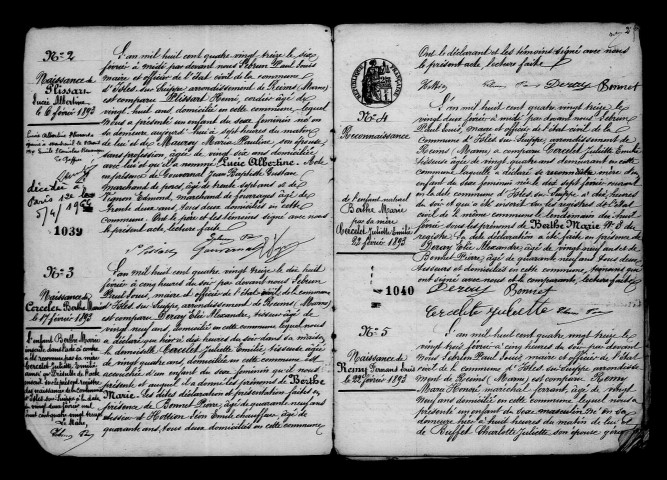 N° 2
Naissance de
Plissart
Lucie Albertine
le 6 février 1893
décédée à
Paris 12e
5/4/1966
1039
N° 3
Naissance de
Cercelet Berthe Marie
le 17 février 1893
L'enfant Berthe Marie
L'an mil huit cent quatre vingt treize le six
février à midi par devant nous Lebrun Paul Louis
maire et officier de l'état civil de la commune
d'Isles sur Suippe arrondissement de Reims (Marne)
est comparu Plissart Henri, âgé de
vingt ans domicilié en cette commune lequel
nous a présenté un enfant du sexe féminin né en
sa demeure aujourd'hui à sept heures du matin
de lui et de Mauroy Marie Pauline, son épouse
sans profession, âgée de vingt six ans domiciliée
avec lui et qu'il a nommé Lucie Albertine. Acte
en présence de Gouverneur Jean Baptiste Gustave
marchand de porcs, âgé de trente septans et de
Vignon Edmond, marchand de fourrages âgé de
trente deux ans tous deux domiciliés en cette
commune. Ont le père et les témoins signé avec nous
le présent acte, lecture faite
L'an mil huit cent quatre vingt treize le dix huit
février à cinq heures du soir par devant nous Lebrun
Paul Louis, maire et officier de l'état civil de la commune
d'Isles sur Suippe arrondissement de Reims (Marne)
est comparu Deray Elie Alexandre, tisseur âgé de
vingt neuf ans, domicilié en cette commune lequel nous
a déclaré que hier à dix heures du soir dans sa maison
le domicile Cercelet Juliette Emilie tisseuse âgée
de vingt quatre ans domiciliée en cette commune est
accouchée d'un enfant du sexe féminin qu'il nous
présente et auquel il a donné les prénoms de Berthe
Marie. Les dites déclaration et présentation faites en
présence de Bonnet Pierre, âgé de quarante neuf ans
tisseur et Hottion Léon Emile chauffeur âgé de
quarante ans, tous deux domiciliés en cette commune
N° 4
Reconnaissance
de l'enfant naturel
Berthe Marie
par sa mère
Cercelet Juliette Emilie
22 février 1893
1040
N° 5
Naissance de
Remy Fernand Louis
le 22 février 1893
Ont le déclarant et les témoins signé avec nous
le présent acte, lecture faite
Deray Bonnet
L'an mil huit cent quatre vingt treize le
vingt deux février à midi par devant nous Lebrun
Paul Louis, maire et officier de l'état civil de la
commune d'Isles sur Suippe arrondissement de
Reims (Marne) a comparu Cercelet Juliette Emilie
tisseuse âgée de vingt quatre ans demeurant en cette
commune laquelle a déclaré se reconnaître mère d'un
enfant du sexe féminin née le dix sept février courant
en la commune d'Isles sur Suippe et dix heures
du soir et qui a été inscrit du registre de l'état
civil de la même commune le lendemain dix huit
février sous les prénoms de Berthe Marie N° 3 du
registre. La dite déclaration a été faite en présence de
Deray Elie Alexandre, âgé de vingt neuf ans et de
Bonnet Pierre, âgé de quarante neuf ans, tous deux
tisseurs et domiciliés en cette commune, lesquels
ont signé avec nous et la comparante, lecture faite
Deray Bonnet
Cercelet Juliette
L'an mil huit cent quatre vingt treize le vingt
deux février à cinq heures du soir par devant
nous Lebrun Paul Louis maire et officier de l'état
civil de la commune d'Isles sur Suippe arrondisse
ment de Reims (Marne) est comparu Remy
Marie Henri maréchal ferrant, âgé de vingt
neuf ans domicilié en cette commune lequel nous a
présenté un enfant du sexe masculin né en sa
demeure hier à huit heures du matin de lui et
de Buffet Charlotte Juliette son épouse